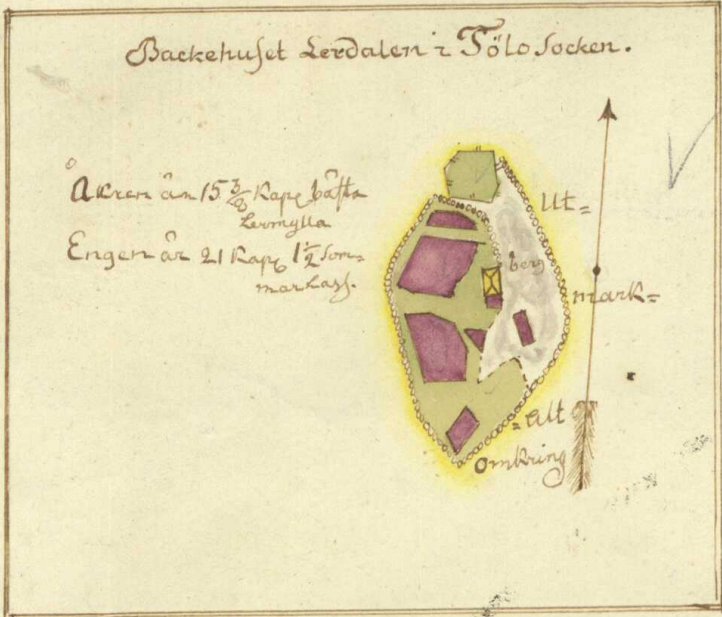 Backehuset Lerdalen i Fölo Socken.
Åkren är 15 3/8 Kap: bästa
Lermylla
Engen är 21 Kap: 1 1/2 Som=
marlass.
Ut=
berg
mark=
=alt
omkring